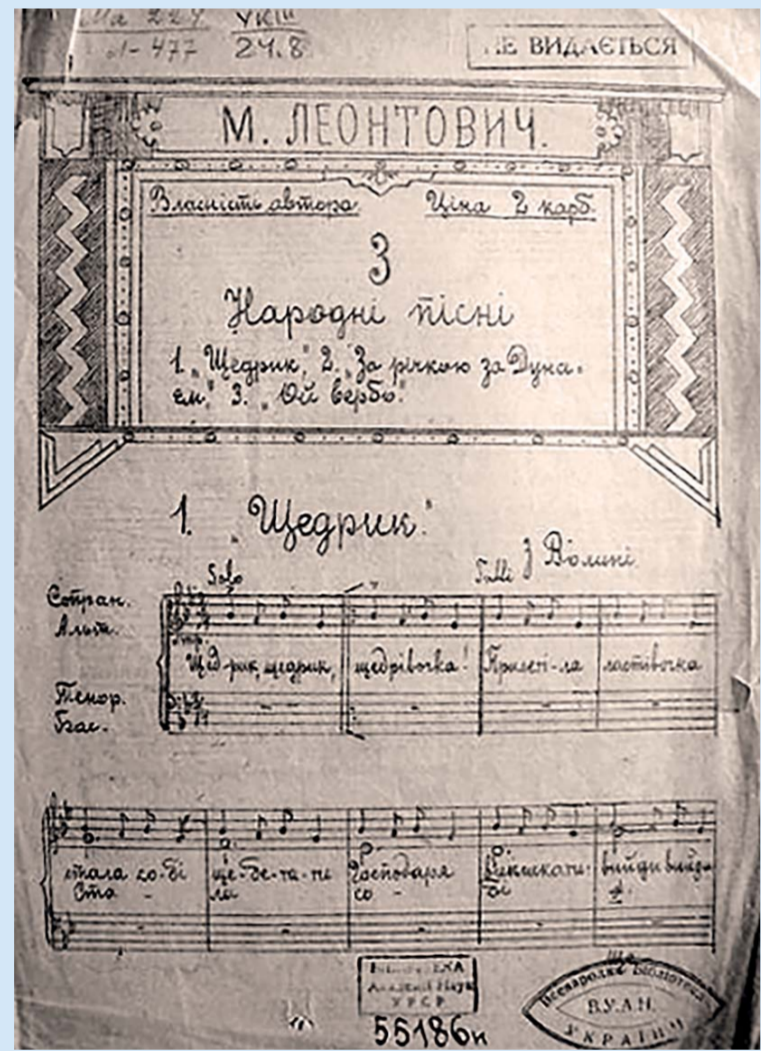 УКІІІ
01-477 24.8
НЕ ВИДАЄТЬСЯ
М. ЛЕОНТОВИЧ.
Власність автора. Ціна 2 карб.
3
Народні пісні
1. „Щедрик," 2. „За річкою за Дуна-
єм." 3. „Ой верба."
1. „Щедрик."
Solo Tutti З Волині
Сопран.
Альт.
Щед-рик, щедрик, щедрівочка! Прилеті-ла ластівочка
Тенор.
Бас.
стала со-бі ще-бе-та-ти Господаря викликати- вийди вийди
Ста - ла со - бі
БІБЛІОТЕКА
Академії Наук
УРСР
55186н
Всенародня Бібліотека
В.У.А.Н.
УКРАЇНИ